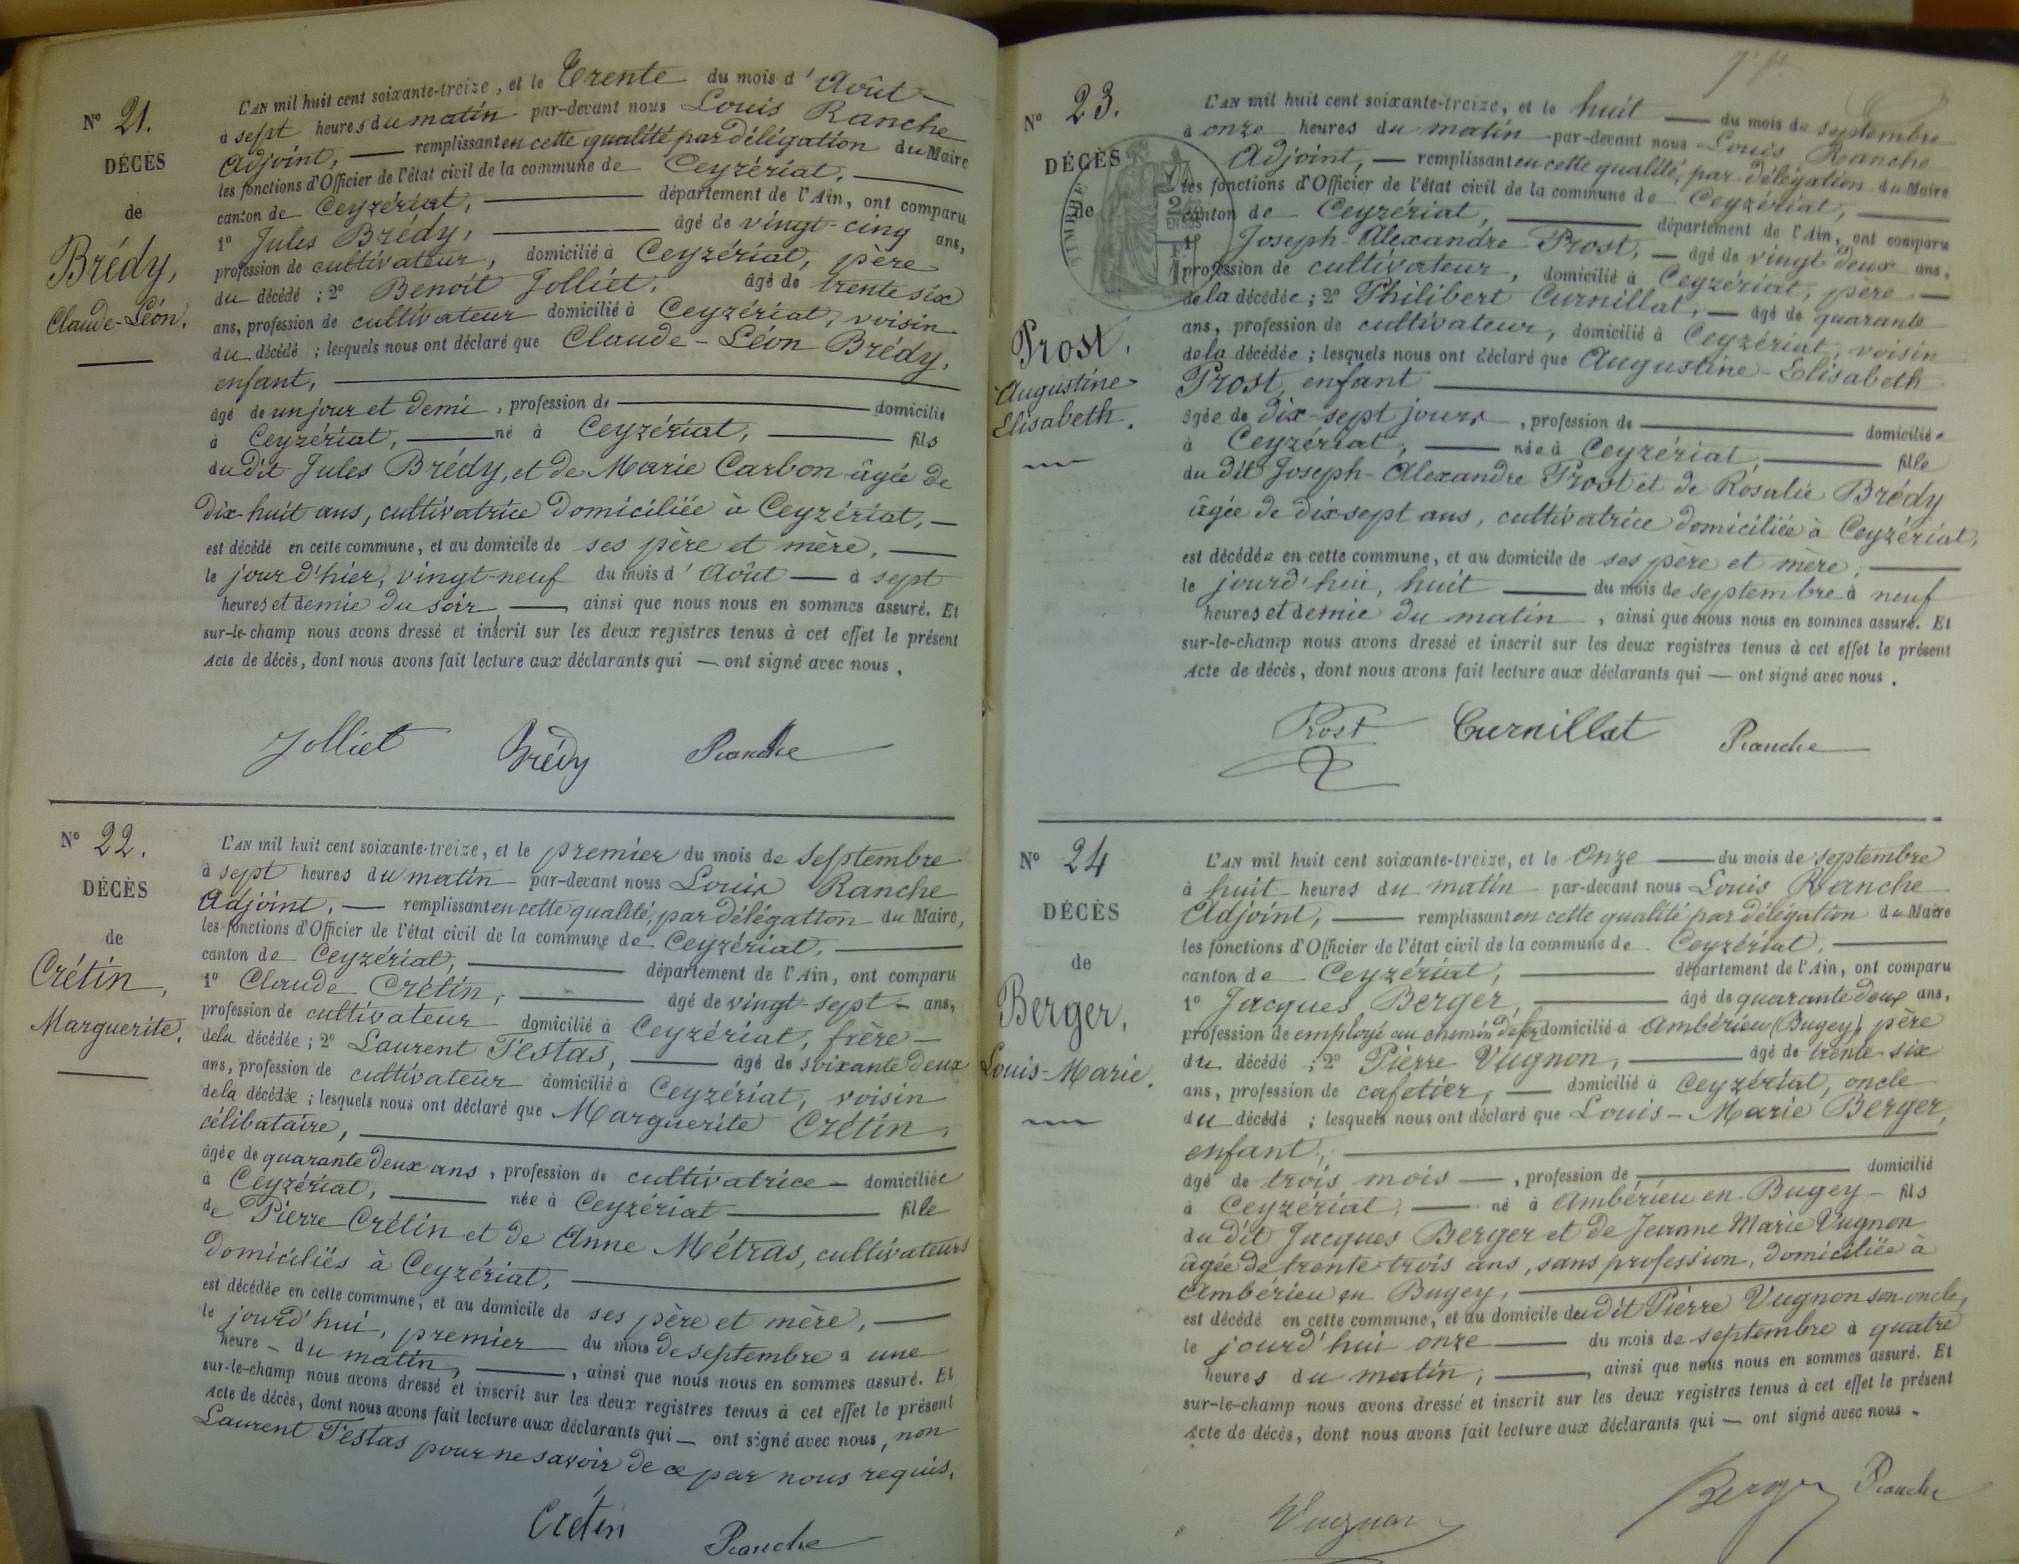 N° 21.
DÉCÈS
de
Brédy,
Claude-Léon.
L'AN mil huit cent soixante-treize, et le Trente du mois d'Août
à sept heures du matin par-devant nous Louis Ranche
Adjoint, remplissant en cette qualité par délégation du Maire
les fonctions d'Officier de l'état civil de la commune de Ceyzériat,
canton de Ceyzériat, département de l'Ain, ont comparu
1° Jules Brédy, âgé de vingt-cinq ans,
profession de cultivateur, domicilié à Ceyzériat, père
du décédé ; 2° Benoît Jolliet, âgé de trente six
ans, profession de cultivateur domicilié à Ceyzériat, voisin
du décédé ; lesquels nous ont déclaré que Claude-Léon Brédy,
enfant,
âgé de un jour et demi, profession de domicilié
à Ceyzériat, né à Ceyzériat, fils
du dit Jules Brédy, et de Marie Carbon âgée de
dix-huit ans, cultivatrice domiciliée à Ceyzériat,
est décédé en cette commune, et au domicile de ses père et mère,
le jour d'hier, vingt-neuf du mois d'Août à sept
heures et demie du soir, ainsi que nous nous en sommes assuré. Et
sur-le-champ nous avons dressé et inscrit sur les deux registres tenus à cet effet le présent
Acte de décès, dont nous avons fait lecture aux déclarants qui ont signé avec nous.
Jolliet Brédy Ranche
N° 22.
DÉCÈS
de
Crétin,
Marguerite.
L'AN mil huit cent soixante-treize, et le premier du mois de Septembre
à sept heures du matin par-devant nous Louis Ranche
Adjoint, remplissant en cette qualité, par délégation du Maire,
les fonctions d'Officier de l'état civil de la commune de Ceyzériat,
canton de Ceyzériat, département de l'Ain, ont comparu
1° Claude Crétin, âgé de vingt-sept ans,
profession de cultivateur domicilié à Ceyzériat, frère
de la décédée ; 2° Laurent Testas, âgé de soixante deux
ans, profession de cultivateur domicilié à Ceyzériat, voisin
de la décédée ; lesquels nous ont déclaré que Marguerite Crétin,
célibataire,
âgée de quarante deux ans, profession de cultivatrice domiciliée
à Ceyzériat, née à Ceyzériat fille
de Pierre Crétin et de Anne Métras, cultivateurs
domiciliés à Ceyzériat,
est décédée en cette commune, et au domicile de ses père et mère,
le jourd'hui, premier du mois de septembre à une
heure du matin, ainsi que nous nous en sommes assuré. Et
sur-le-champ nous avons dressé et inscrit sur les deux registres tenus à cet effet le présent
Acte de décès, dont nous avons fait lecture aux déclarants qui ont signé avec nous, non
Laurent Testas pour ne savoir de ce par nous requis.
Crétin Ranche
N° 23.
DÉCÈS
de
Prost,
Augustine
Elisabeth.
L'AN mil huit cent soixante-treize, et le huit du mois de septembre
à onze heures du matin par-devant nous Louis Ranche
Adjoint, remplissant en cette qualité, par délégation du Maire
les fonctions d'Officier de l'état civil de la commune de Ceyzériat,
canton de Ceyzériat, département de l'Ain, ont comparu
1° Joseph-Alexandre Prost, âgé de vingt deux ans,
profession de cultivateur, domicilié à Ceyzériat, père
de la décédée ; 2° Philibert Curnillat, âgé de quarante
ans, profession de cultivateur, domicilié à Ceyzériat, voisin
de la décédée ; lesquels nous ont déclaré que Augustine-Elisabeth
Prost, enfant
âgée de dix-sept jours, profession de domiciliée
à Ceyzériat, née à Ceyzériat, fille
du dit Joseph-Alexandre Prost et de Rosalie Brédy
âgée de dix-sept ans, cultivatrice domiciliée à Ceyzériat,
est décédée en cette commune, et au domicile de ses père et mère,
le jourd'hui, huit du mois de septembre à neuf
heures et demie du matin, ainsi que nous nous en sommes assuré. Et
sur-le-champ nous avons dressé et inscrit sur les deux registres tenus à cet effet le présent
Acte de décès, dont nous avons fait lecture aux déclarants qui ont signé avec nous.
Prost Curnillat Ranche
N° 24
DÉCÈS
de
Berger,
Louis-Marie.
L'AN mil huit cent soixante-treize, et le onze du mois de septembre
à huit heures du matin par-devant nous Louis Ranche
Adjoint, remplissant en cette qualité par délégation du Maire
les fonctions d'Officier de l'état civil de la commune de Ceyzériat,
canton de Ceyzériat, département de l'Ain, ont comparu
1° Jacques Berger, âgé de quarante deux ans,
profession de employé au chemin de fer domicilié à Ambérieu (Bugey), père
du décédé ; 2° Pierre Vugnon, âgé de trente-six
ans, profession de cafetier, domicilié à Ceyzériat, oncle
du décédé ; lesquels nous ont déclaré que Louis-Marie Berger,
enfant,
âgé de trois mois, profession de domicilié
à Ceyzériat, né à Ambérieu en Bugey fils
du dit Jacques Berger et de Jeanne Marie Vugnon
âgée de trente-trois ans, sans profession, domiciliée à
Ambérieu en Bugey,
est décédé en cette commune, et au domicile du dit Pierre Vugnon son oncle,
le jourd'hui onze du mois de septembre à quatre
heures du matin, ainsi que nous nous en sommes assuré. Et
sur-le-champ nous avons dressé et inscrit sur les deux registres tenus à cet effet le présent
Acte de décès, dont nous avons fait lecture aux déclarants qui ont signé avec nous.
Vugnon Berger Ranche